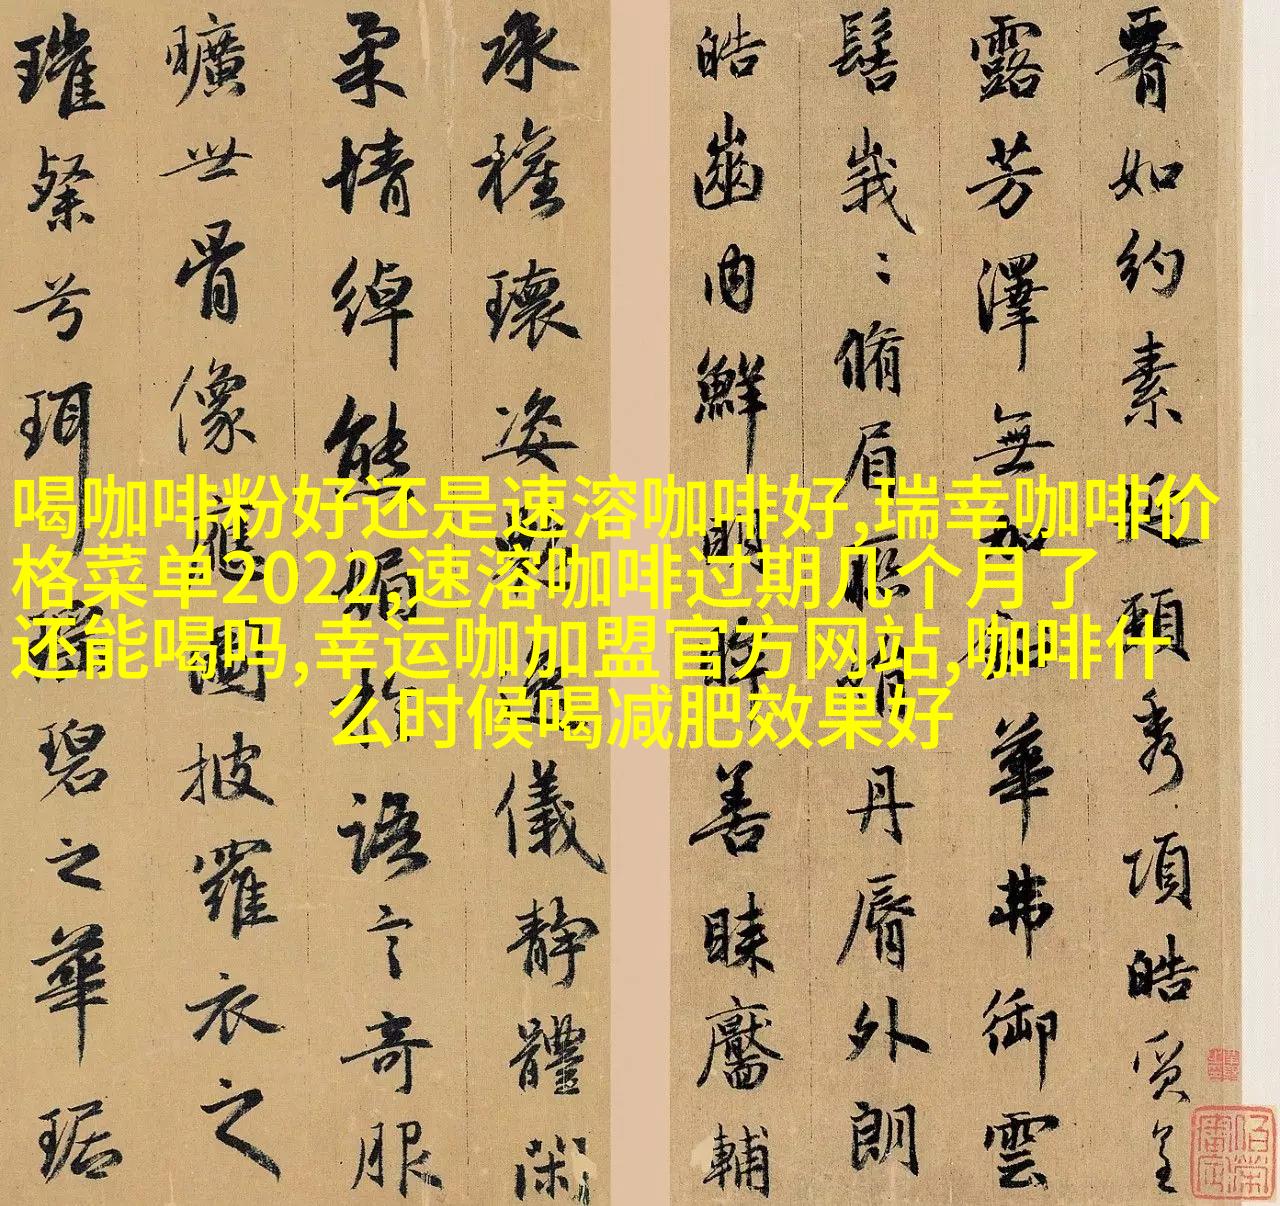 喝咖啡粉好还是速溶咖啡好,瑞幸咖啡价
格菜单2022,速溶咖啡过期几个月了
还能喝吗,幸运咖加盟官方网站,咖啡什
么时候喝减肥效果好
如約素延秀項皓質呈
露芳澤無華弗御雲
髻峩〻脩眉丹脣外朗
皓齒内鮮明善睞靨輔
承權瓌姿儀靜體閑
柔情綽態媚語言奇服
曠世骨像應圖披羅衣之
璀粲兮珥碧之華琚